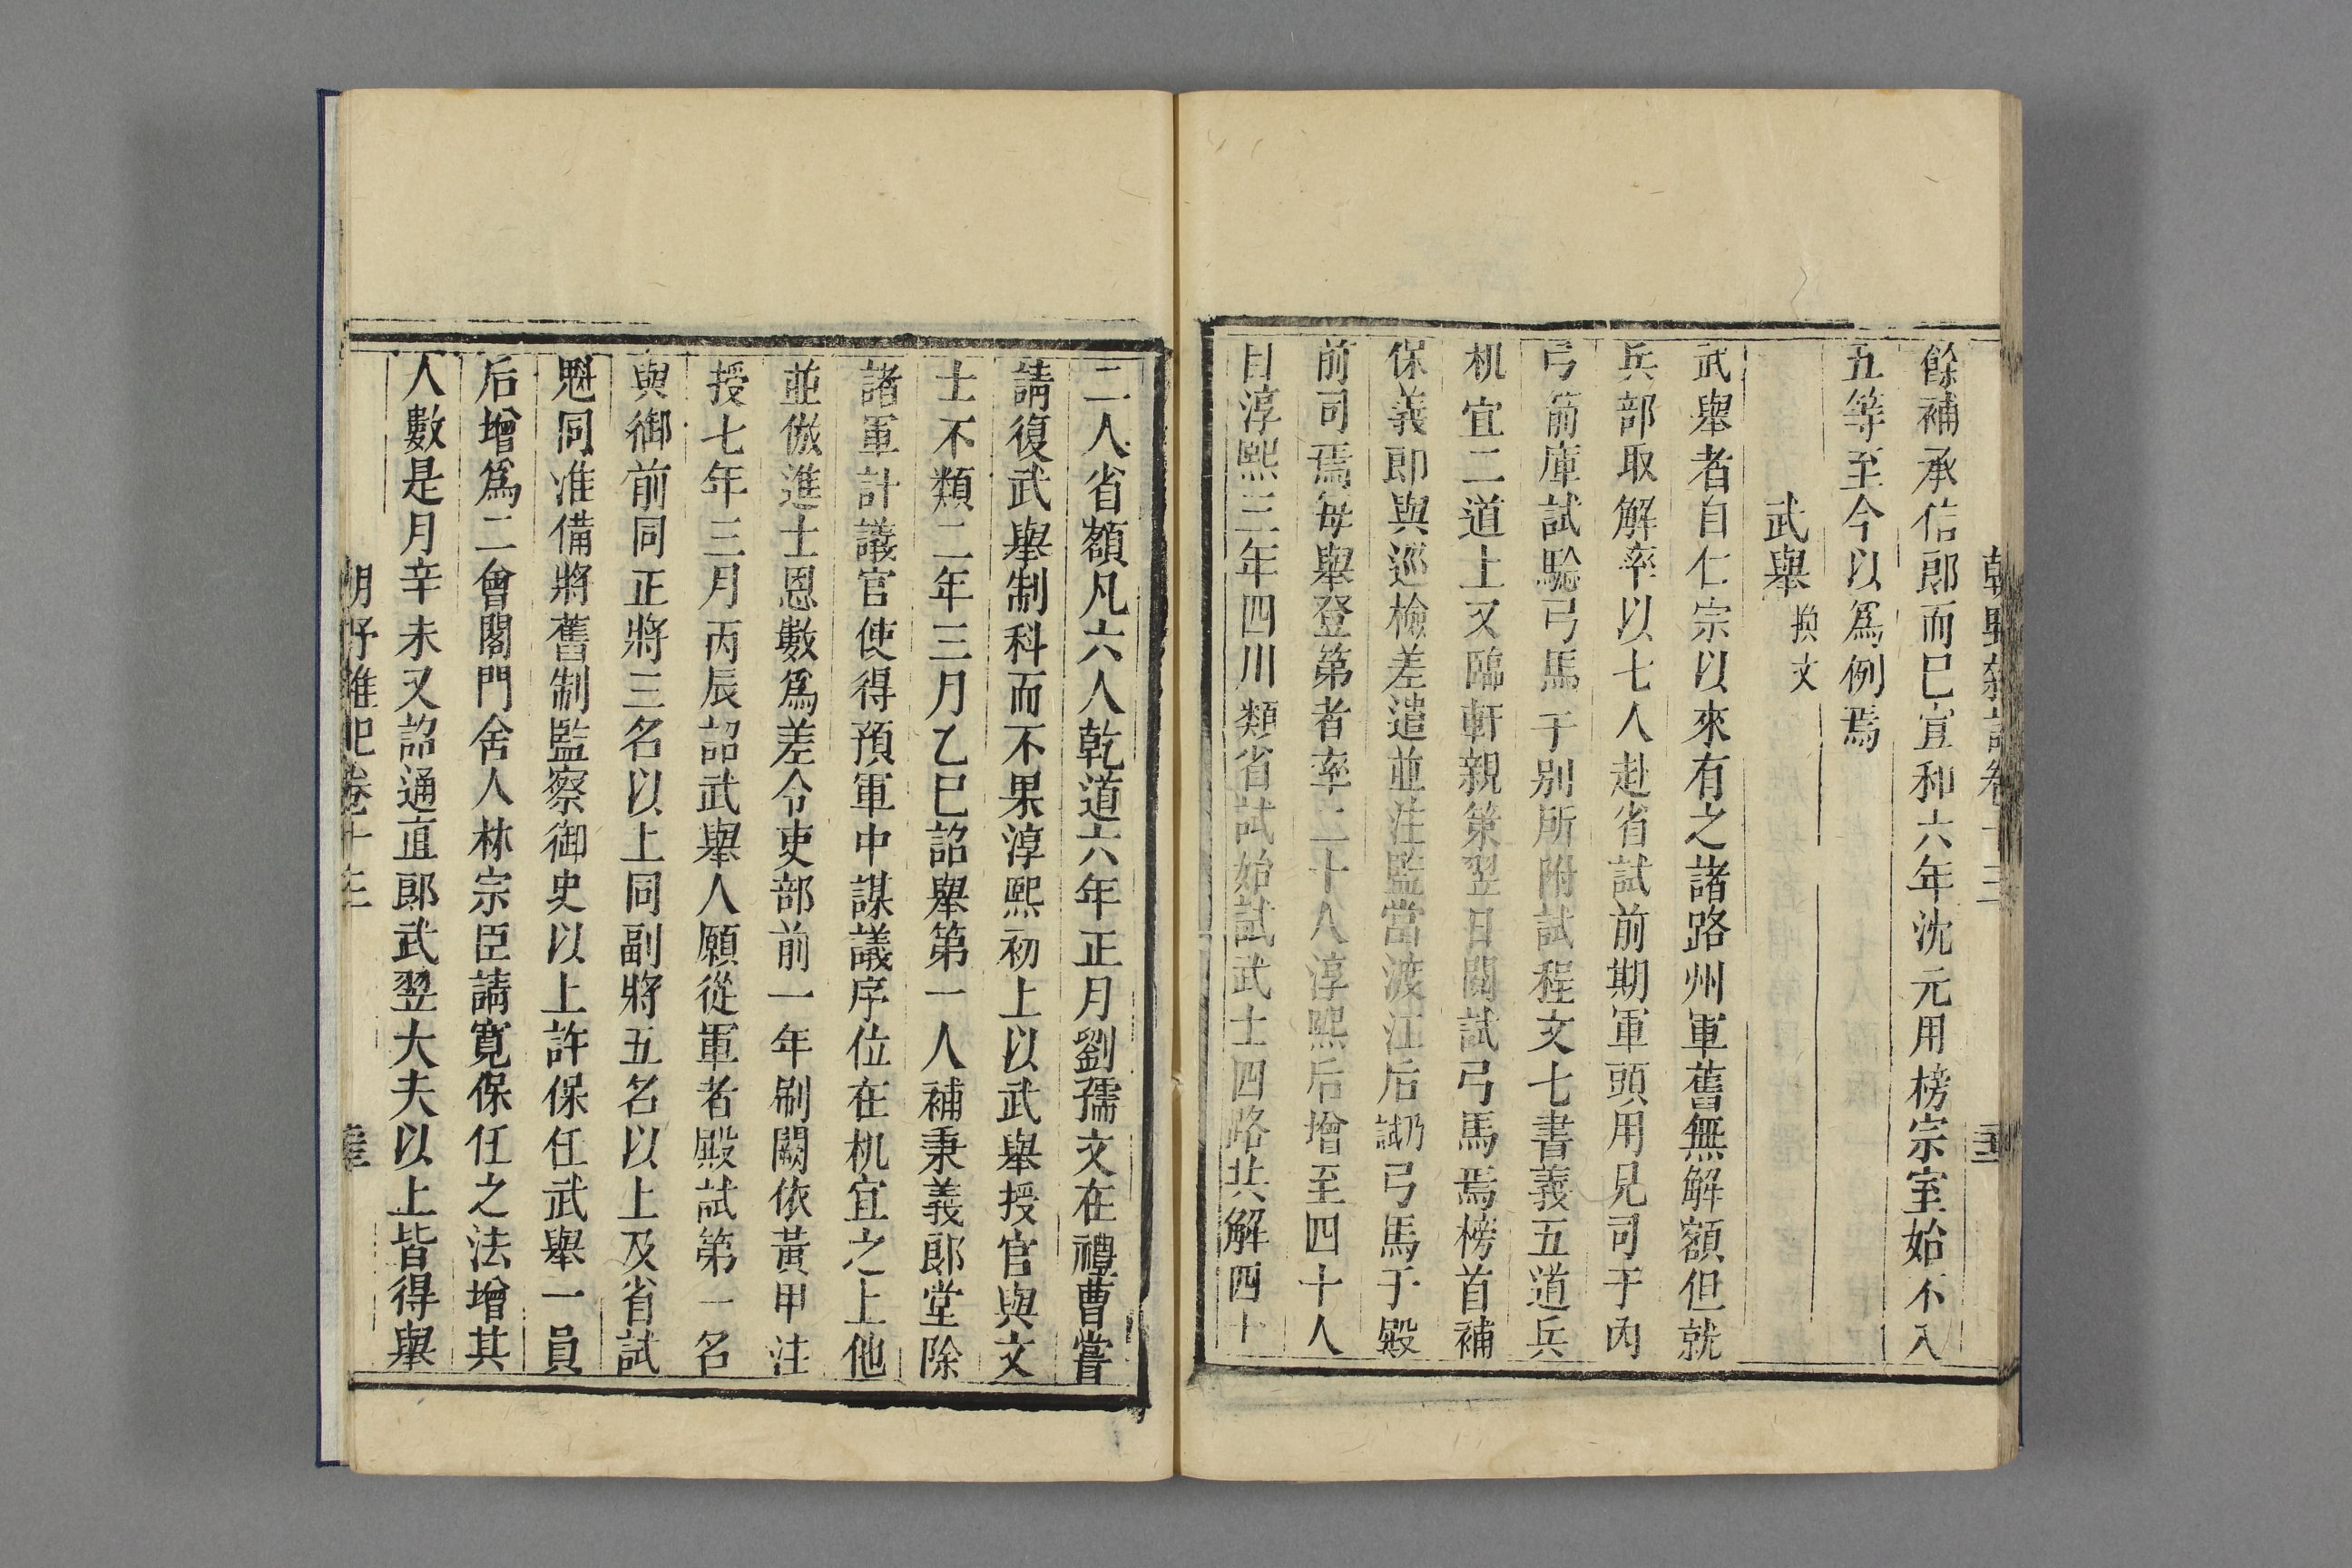 餘補承信郎而巳宣和六年沈元用榜宗室始不入
五等至今以爲例焉
武舉 換文
武舉者自仁宗以來有之諸路州軍舊無解額但就
兵部取解率以七人赴省試前期軍頭用見司于内
弓箭庫試驗弓馬于别所附試程文七書義五道兵
机宜二道上又臨軒親策翌日閱試弓馬焉榜首補
保義郎與巡檢差遣並注監當渡江后仍試弓馬于殿
前司焉每舉登第者率二十人淳熙后增至四十人
目淳熙三年四川類省試始試武士四路共解四十
二人省額凡六人乾道六年正月劉孺文在禮曹嘗
請復武舉制科而不果淳熙初上以武舉授官與文
士不類二年三月乙巳詔舉第一人補秉義郎堂除
諸軍計議官使得預軍中謀議序位在机宜之上他
並倣進士恩數爲差令吏部前一年刷闕依黃甲注
授七年三月丙辰詔武舉人願從軍者殿試第一名
與御前同正將三名以上同副將五名以上及省試
魁同准備將舊制監察御史以上許保任武舉一員
后增爲二會閣門舍人林宗臣請寬保任之法增其
人數是月辛未又詔通直郎武翌大夫以上皆得舉